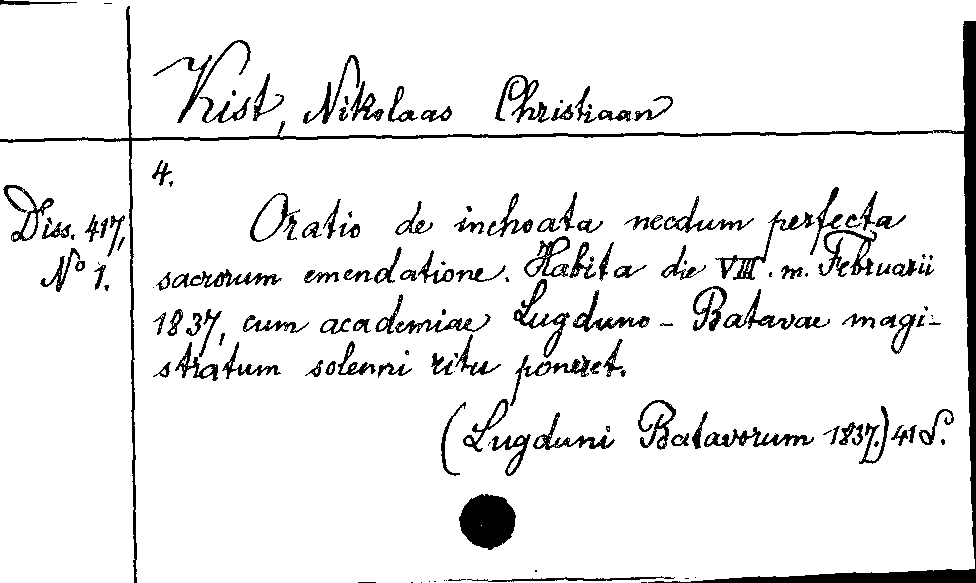 Kist, Nikolaas Christiaan
4.
Diss. 417,
No 1.
Oratio de inchoata necdum perfecta
sacrorum emendatione. Habita die VIII. m. Februarii
1837, cum academiae Lugduno-Batavae magi-
stratum solenni ritu poneret.
(Lugduni Batavorum 1837.) 41 S.